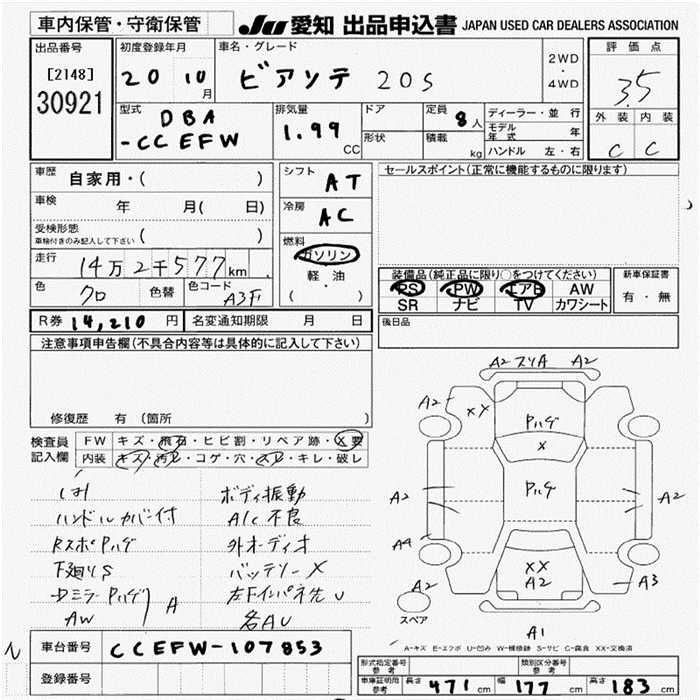 車内保管・守衛保管
JU 愛知 出品申込書 JAPAN USED CAR DEALERS ASSOCIATION
出品番号
[2148]
30921
初度登録年月
20 10月
車名・グレード
ビアンテ 20S
2WD
・
4WD
評価点
3.5
外装 内装
C C
型式
DBA
-CCEFW
排気量
1.99 CC
ドア
形状
定員
8人
積載
kg
ディーラー・並行
モデル年式 年
ハンドル 左・右
車歴
自家用・( )
車検
年 月( 日)
受検形態
車検付きのみ記入して下さい ( )
走行
14万2千577km
色
クロ
色替
色コード
A3F
シフト
AT
冷房
AC
燃料
ガソリン
軽・油
( ・ )
セールスポイント(正常に機能するものに限ります)
装備品(純正品に限り○をつけてください)
PS PW エアB AW
SR ナビ TV カワシート
新車保証書
有・無
後日品
R券 14,210 円
名変通知期限 月 日
注意事項申告欄(不具合内容等は具体的に記入して下さい)
修復歴 有 (箇所 )
検査員
記入欄
FW キズ・飛石・ヒビ割・リペア跡・X要
内装 キズ・汚レ・コゲ・穴・スレ・キレ・破レ
ハンドルカバー付
RスポPハゲ
下廻りS
ドミラーPハゲ
AW
A
ボディ振動
A/C不良
外オーディオ
バッテリーX
左Fインパネ先U
各AU
A2 スリA A2
A2
XX
Pハゲ
X
Pハゲ
A2
A2
A4
XX
A2
A2
A3
スペア
A1
A-キズ E-エクボ U-凹み W-補修跡 S-サビ C-腐食 XX-交換済
車台番号 CCEFW-107853
登録番号
型式指定番号
参考
類別区分番号
参考
車庫証明用
参考
長さ 471 cm 幅 177 cm 高さ 183 cm